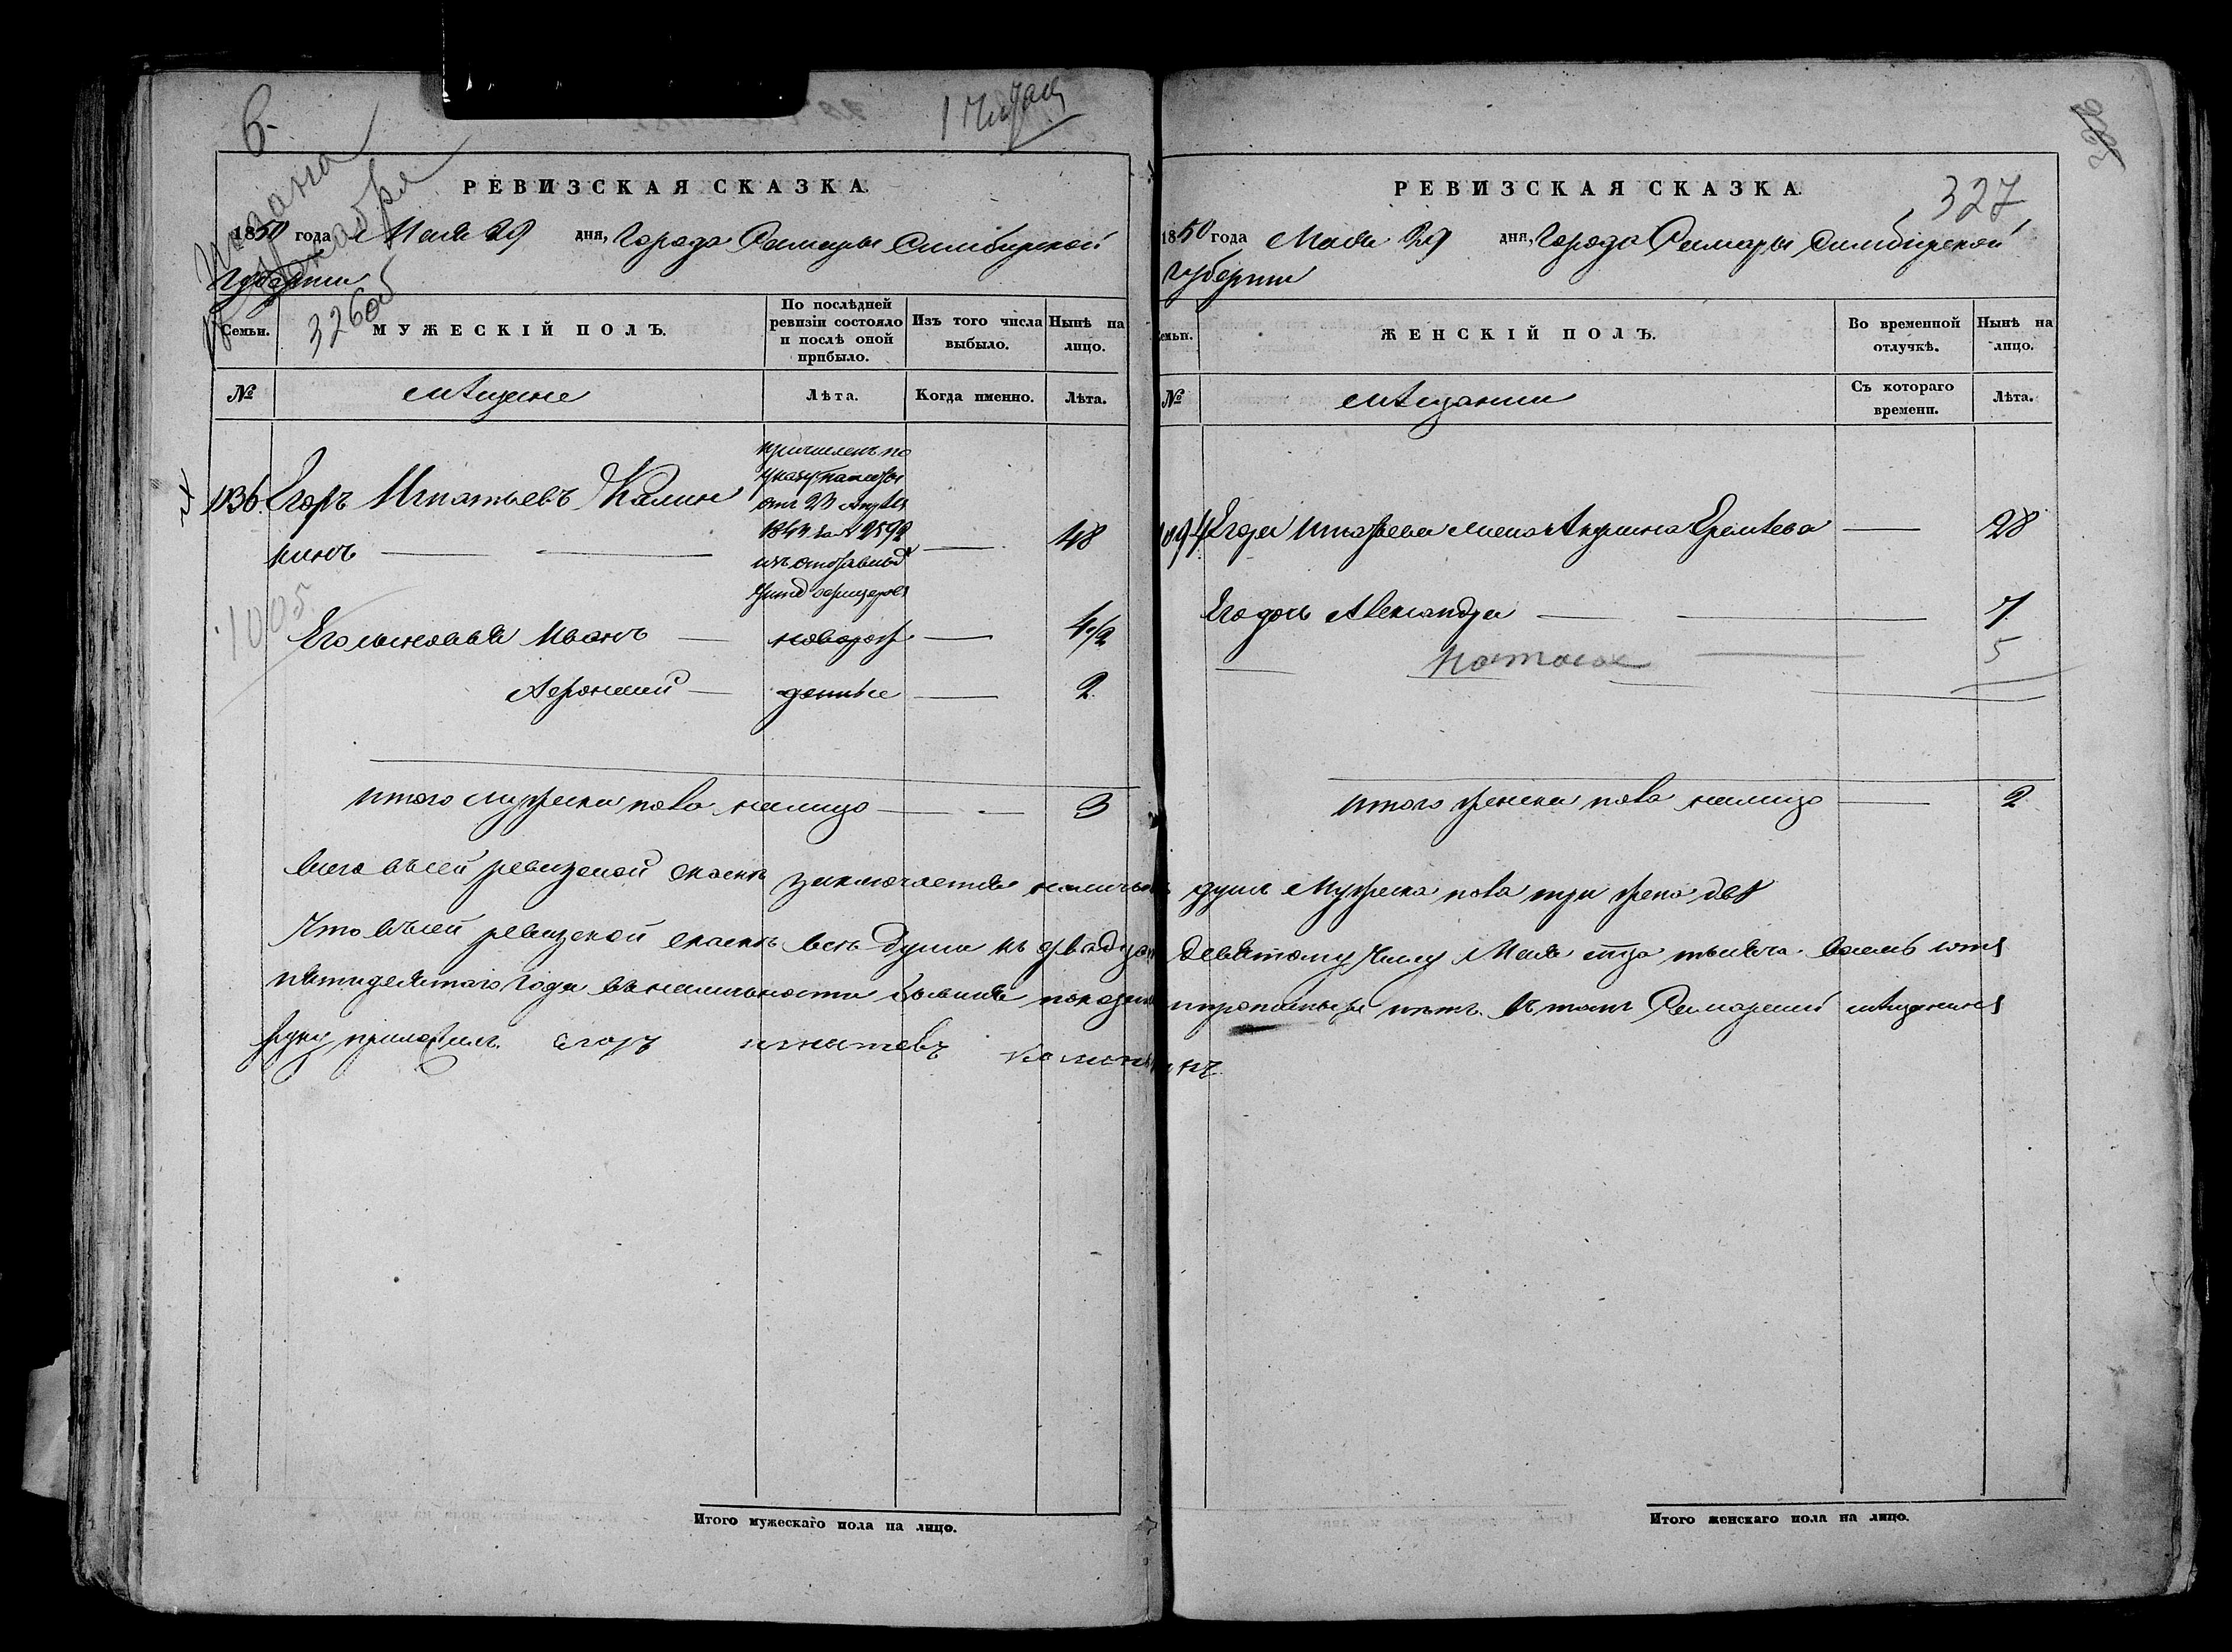 6.
РЕВИЗСКАЯ СКАЗКА.
1850 года Мая 29 дня, Города Самары Симбирской
губернии
326об
Семьи. МУЖЕСКІЙ ПОЛЪ. По послѣдней ревизіи состояло и послѣ оной прибыло. Изъ того числа выбыло. Нынѣ на лицо.
№ мѣщане Лѣта. Когда именно. Лѣта.
причисленъ по
указу палаты
от 23 августа
1843 за № 2592
1136. Егоръ Игнатьевъ Калин
нинъ — — — 48
изъ отставных
1005
Его сыновья Иванъ — новорож — 4 1/2
Афонасий — денные — 2
итого мужеска пола налицо — — 3
Итого мужескаго пола на лицо.
327
РЕВИЗСКАЯ СКАЗКА.
1850 года Мая 29 дня, Города Самары Симбирской
губернии
Семьи. ЖЕНСКІЙ ПОЛЪ. Во временной отлучкѣ. Нынѣ на лицо.
№ мѣщанки Съ котораго времени. Лѣта.
1094 Егора Игнатьева жена Акулина Еремѣева — 28
Его дочь Александра — — 7
5
итого женска пола налицо — 2
всего въ сей ревизской сказкѣ заключается наличныхъ душъ Мужеска пола три женска двѣ
Что въ сей ревизской сказкѣ всѣ души къ двадцать девятому числу Мая тысяча восемь сотъ
пятидесятаго года въ наличности бывшия показаны и прописныхъ нѣтъ. въ томъ Самарский мѣщанинъ
руку приложилъ. Егоръ игнатевъ калинынинъ
Итого женскаго пола на лицо.